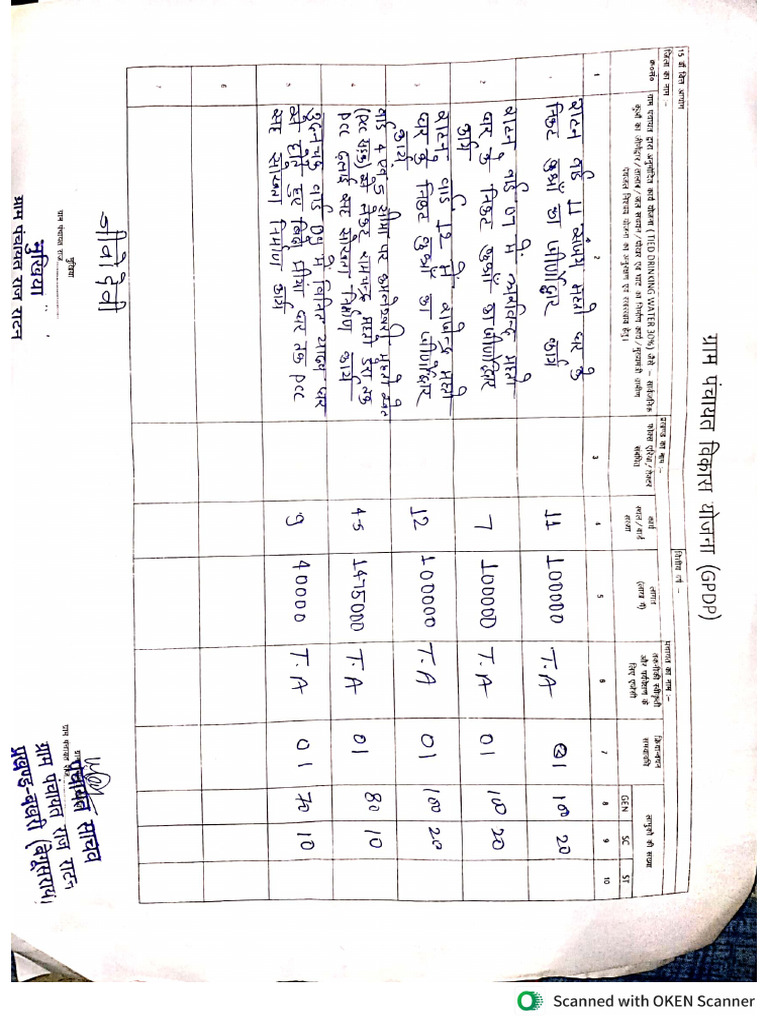 ग्राम पंचायत विकास योजना (GPDP)
15 वी वित्त आयोग
वित्तीय वर्ष :-
जिला का नाम :-
प्रखण्ड का नाम :-
पंचायत का नाम :-
क्र०सं०
ग्राम पंचायत द्वारा अनुमोदित कार्य योजना ( TIED DRINKING WATER 30%) जैसे – सार्वजनिक
कुओं का जीर्णोद्धार/तालाब/जल संचयन/पोखर एवं घाट का निर्माण कार्य/मुख्यमंत्री ग्रामीण
पेयजल निश्चय योजना का अनुरक्षण एवं रखरखाव हेतु।
फोकस एरिया/सेक्टर
संबंधित
कार्य
स्थल/वार्ड
संख्या
लागत
(लाख में)
तकनीकी स्वीकृती
और पर्यवेक्षण के
लिए एजेंसी
क्रियान्वयन
समयावधि
लाभुकों की संख्या
GEN SC ST
1 2 3 4 5 6 7 8 9 10
1 राटन वार्ड 11 संजय महतो घर के
निकट कुआँ का जीर्णोद्धार कार्य
11 100000 T.A 01 100 20
2 राटन वार्ड 07 में अरविन्द महतो
घर के निकट कुआँ का जीर्णोद्धार
कार्य
7 100000 T.A 01 100 20
3 राटन वार्ड 12 में राजेन्द्र महतो
घर के निकट कुआँ का जीर्णोद्धार
कार्य
12 100000 T.A 01 100 20
4 वार्ड 4 एवं 5 सीमा पर कमलेश्वरी महतो के खेत
(PCC सड़क) से लेकर रामचन्द्र महतो डेरा तक
PCC ढलाई सह सोख्ता निर्माण कार्य
4-5 1475000 T.A 01 80 10
5 वार्ड 09 में यादव घर
से होते हुए मिया घर तक PCC
सह सोख्ता निर्माण कार्य
9 40000 T.A 01 70 10
6
7
देवी
मुखिया
ग्राम पंचायत राज
मुखिया
ग्राम पंचायत राज राटन
ग्राम पंचायत राज
पंचायत सचिव
ग्राम पंचायत राज राटन
प्रखण्ड-बखरी (बेगूसराय)
Scanned with OKEN Scanner